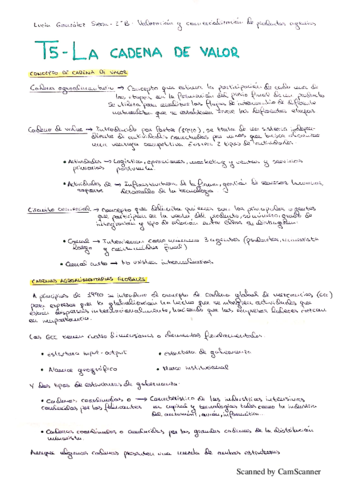 Lucía González Sosa - 2ºB - Valoración y comercialización de productos agrarios
T5 - LA CADENA DE VALOR
CONCEPTO DE CADENA DE VALOR
Cadena agroalimentaria → Concepto que estudia la participación de cada una de
las etapas en la formación del precio final de un producto
se utiliza para analizar los flujos de intercambio de diferente
naturaleza que se establecen entre las diferentes etapas
Cadena de valor → Introducido por Porter (1990), se trata de un sistema
de actividades conectadas
una ventaja competitiva 2 tipos de actividades
• Actividades → Logística, operaciones, marketing y ventas y servicios
primarias postventa
• Actividades de → Infraestructura de la firma, gestión de recursos humanos,
soporte desarrollo de la tecnología
→ Concepto que quienes son los principales agentes
que participan en la venta del producto, grado de
y el tipo de relación entre ellos
• Canal → Intervienen como mínimo 3 agentes (productor,
largo y consumidor final)
• Canal corto → No existen intermediarios.
CADENAS AGROALIMENTARIAS GLOBALES
A principios de 1990 se introduce el concepto de cadena global de mercancías (GCC)
para expresar que la globalización los que se actividades que
están dispersas internacionalmente, haciendo que las empresas líderes
su importancia.
Las GCC tienen cuatro dimensiones o elementos fundamentales:
• estructura input-output • estructura de gobernanza
• Alcance geográfico • Marco institucional
Y dos tipos de estructuras de gobernanza:
• Cadenas coordinadas o → Característica de las industrias intensivas
conducidas por los fabricantes en capital y tecnologías tales como la industria
de automóvil, aeronáutica
• Cadenas coordinadas o conducidas por las grandes cadenas de la distribución
minorista
Aunque algunas cadenas presentan una mezcla de ambas estructuras
Scanned by CamScanner